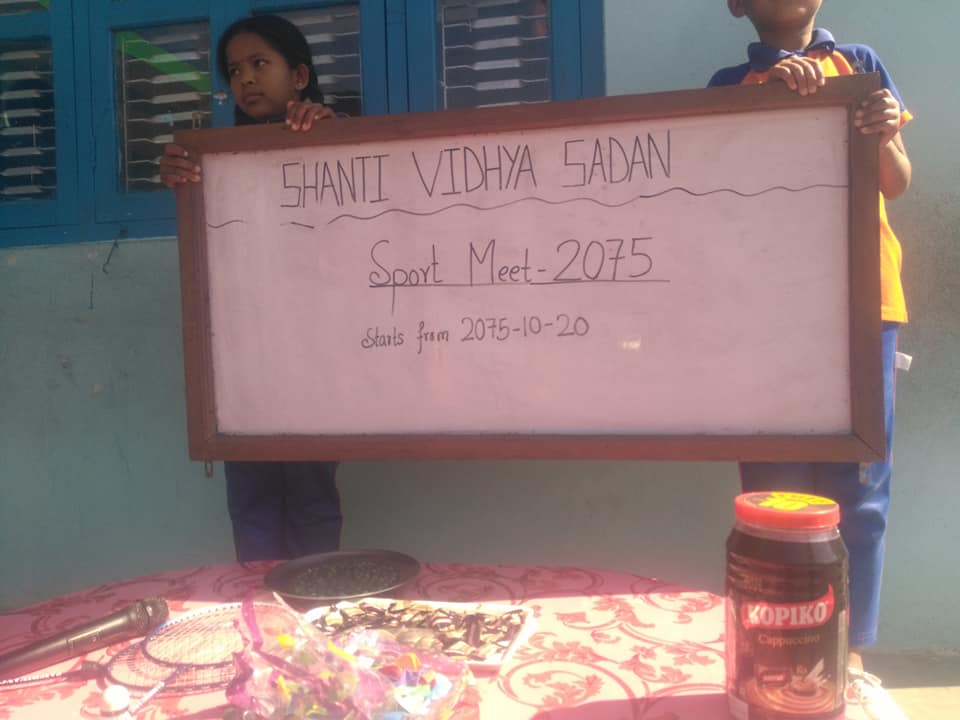 SHANTI VIDHYA SADAN
Sport Meet-2075
Starts from 2075-10-20
KOPIKO
Cappuccino